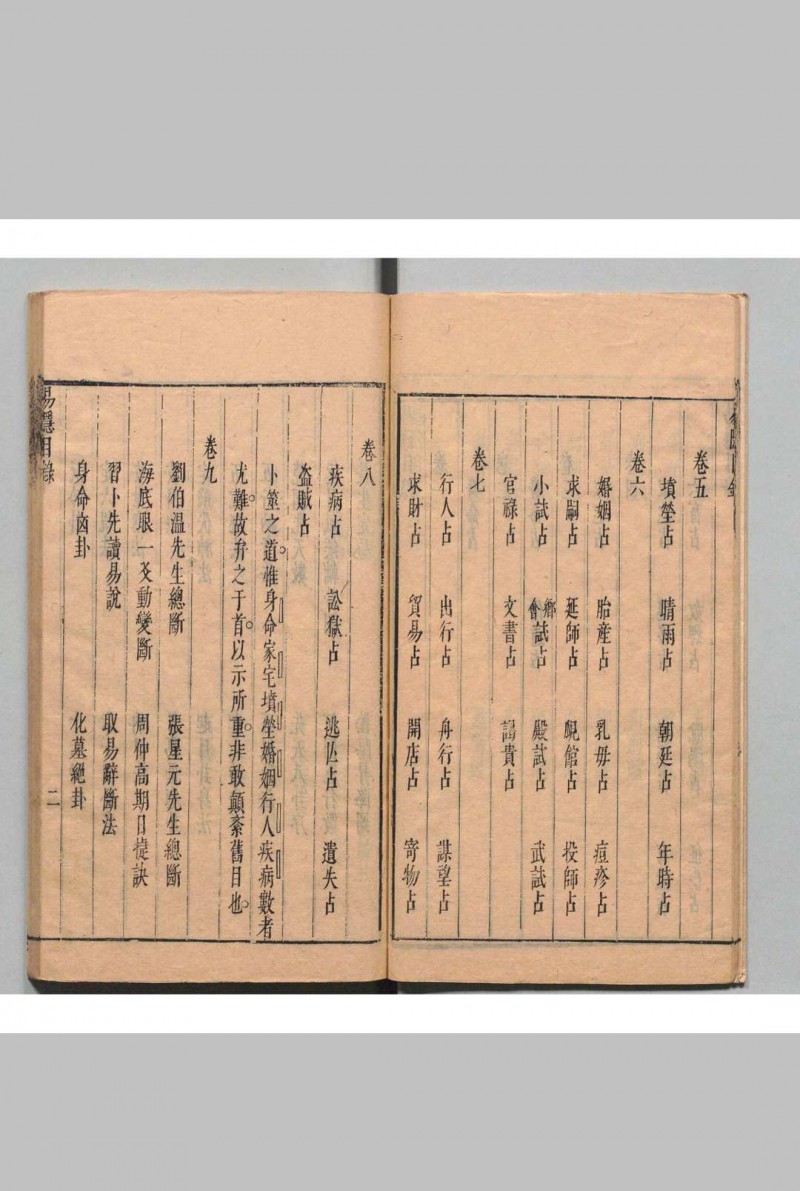 卷五
墳塋占 晴雨占 朝廷占 年時占
卷六
婚姻占 胎產占 乳母占 痘疹占
求嗣占 延師占 覓館占 投師占
小試占 鄉會試占 殿試占 武試占
官祿占 文書占 謁貴占
卷七
行人占 出行占 舟行占 謀望占
求財占 貿易占 開店占 寄物占
卷八
疾病占 訟獄占 逃亾占 遺失占
盜賊占
卜筮之道。惟身命家宅墳塋婚姻行人疾病數者
尤難。故弁之于首。以示所重。非敢顛紊舊目也。
卷九
劉伯溫先生總斷 張星元先生總斷
海底眼一爻動變斷 周仲高期日捷訣
習卜先讀易說 取易辭斷法
身命凶卦 化墓絕卦
易隱目錄 二